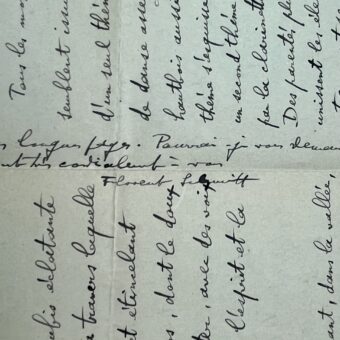 Tous les mo
semblent issu
d'un seul thème
de danse asse
hautbois aussi
thème s'esquisse
un second thème
par la clarinette
Des parentés pl
unissent les élé
s longues pages. Pourrai-je vous deman
très cordialement à vous
Florent Schmitt
éclatante
à travers laquelle
et étincelant
s, dont le doux
avec des voix
l'esprit et la
ant, dans la vallée,